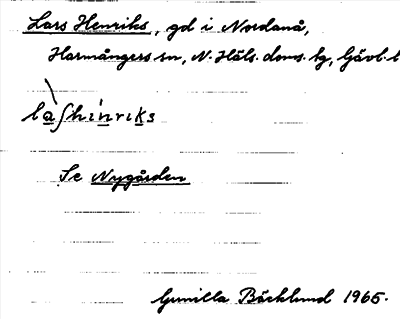 Lars Henriks, gd i Nordanå,
Harmångers sn, N. Häls. doms. tg, Gävl. l
làʃhìnriks
Se Nygården
Gunilla Bäcklund 1965.